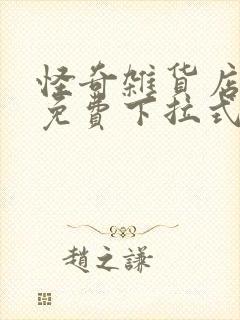 怪奇雑貨店
免費下拉式
趙之謙